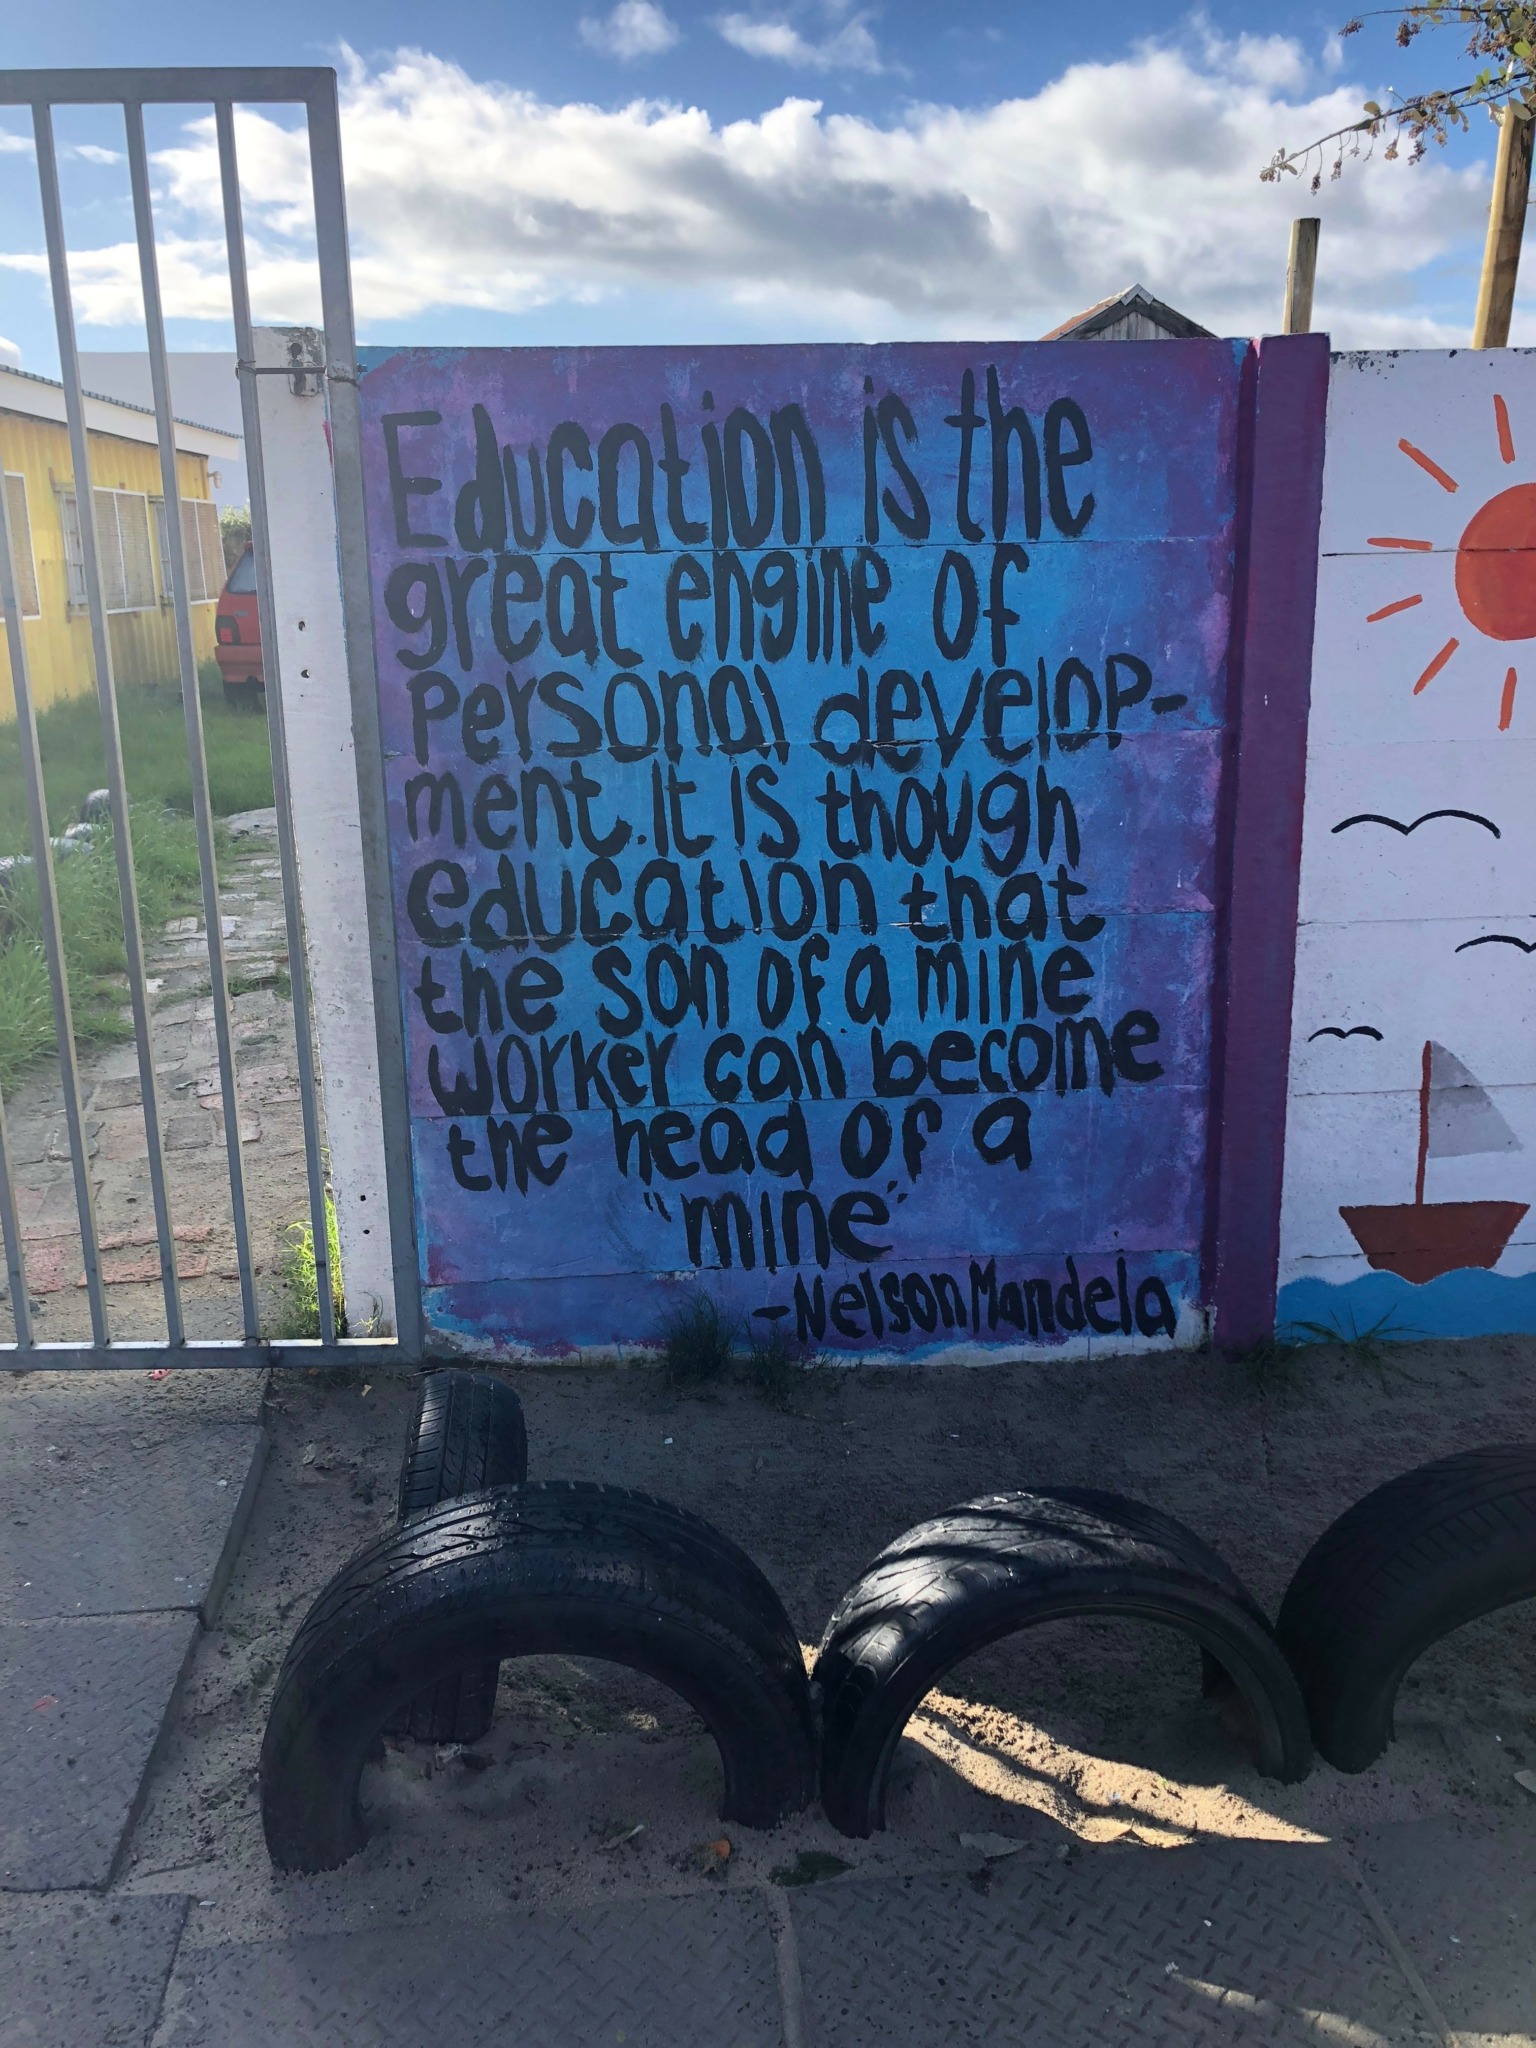 Education is the
great engine of
Personal develop-
ment. It is though
education that
the son of a mine
worker can become
the head of a
"mine"
-Nelson Mandela